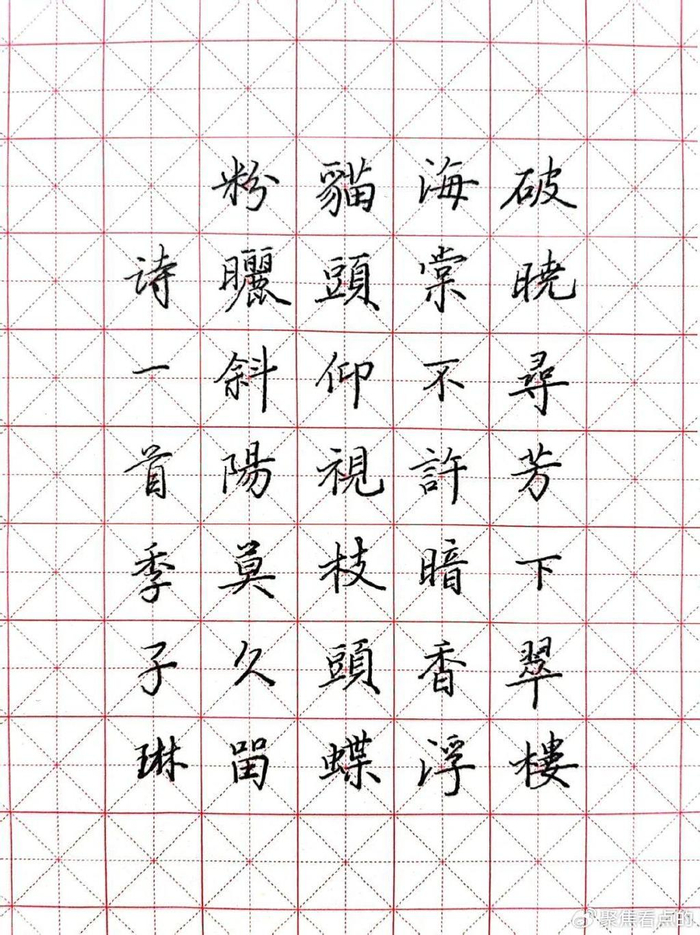 破曉尋芳下翠樓
海棠不許暗香浮
貓頭仰視枝頭蝶
粉曬斜陽莫久畱
詩一首季子琳
@聚焦看点的